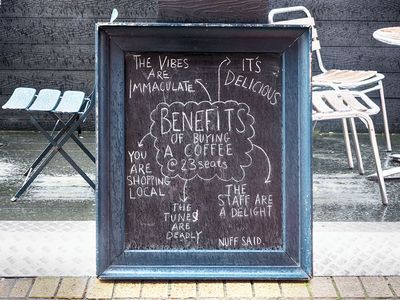 THE VIBES
ARE
IMMACULATE
IT'S
DELICIOUS
BENEFITS
OF BUYING
A COFFEE
@23seats
YOU
ARE
SHOPPING
LOCAL
THE
TUNES
ARE
DEADLY
THE
STAFF ARE
A DELIGHT
NUFF SAID